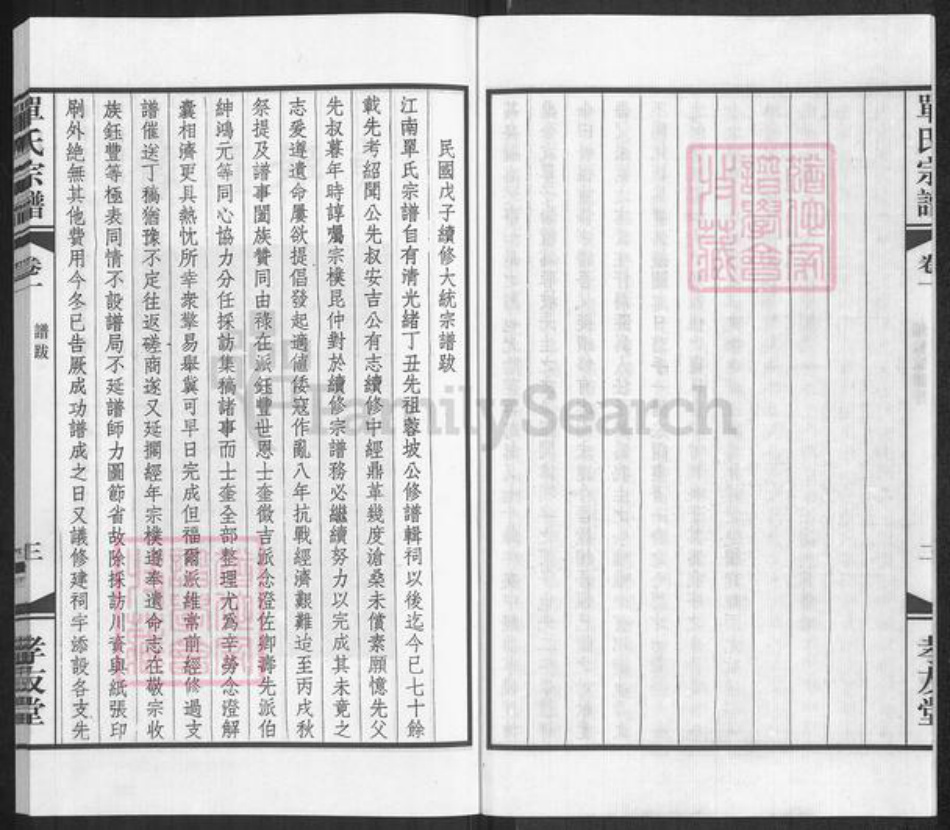 單氏宗譜
卷一
二
孝友堂
民國戊子續修大統宗譜跋
江南單氏宗譜自有清光緒丁丑先祖蓉坡公修譜輯祠以後迄今已七十餘
載先考紹聞公先叔安吉公有志續修中經鼎革幾度滄桑未償素願憶先父
先叔暮年時諄囑宗樸昆仲對於續修宗譜務必繼續努力以完成其未竟之
志爰遵遺命屢欲提倡發起適値倭寇作亂八年抗戰經濟艱難迨至丙戌秋
祭提及譜事闔族贊同由祿在派鈺豐世恩士奎徽吉派念澄佐卿壽先派伯
紳鴻元等同心協力分任採訪集稿諸事而士奎全部整理尤爲辛勞念澄解
囊相濟更具熱忱所幸衆擎易舉冀可早日完成但福爾派維常前經修過支
譜催送丁稿猶豫不定往返磋商遂又延擱經年宗樸遵奉遺命志在敬宗收
族鈺豐等極表同情不設譜局不延譜師力圖節省故除採訪川資與紙張印
刷外絶無其他費用今冬已告厥成功譜成之日又議修建祠宇添設各支先
單氏宗譜
卷一
譜跋
三
孝友堂
FamilySearch